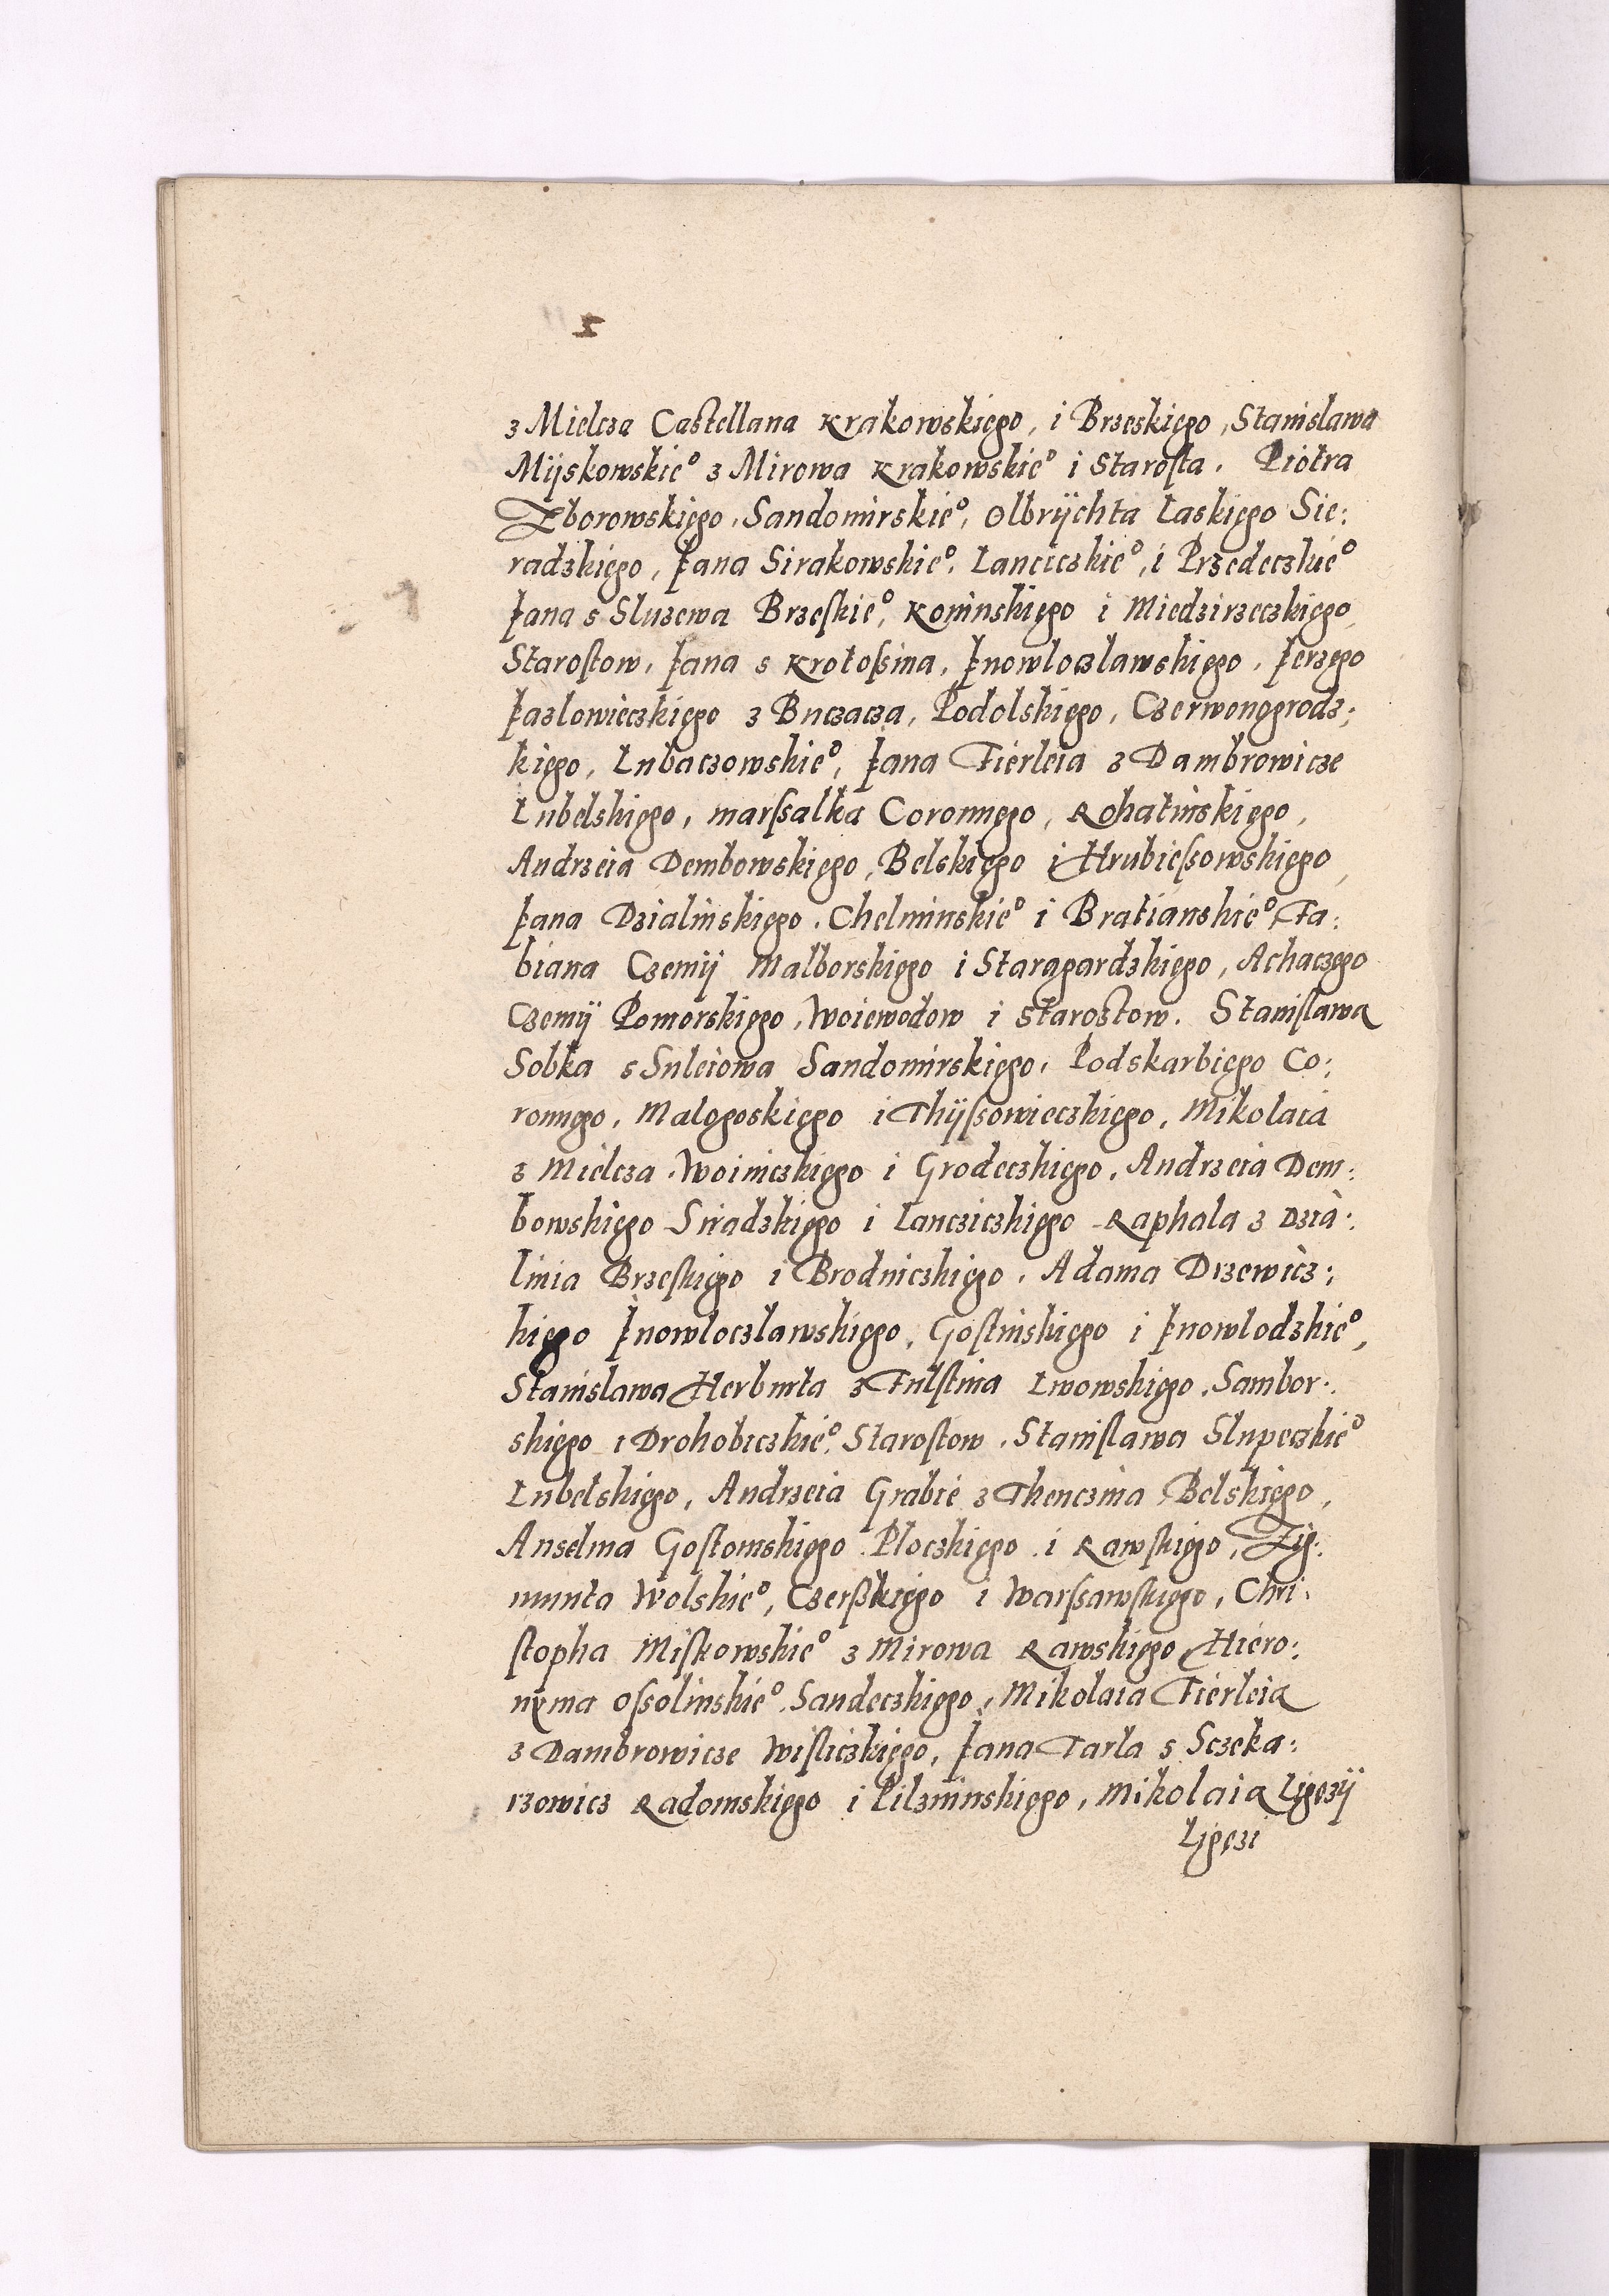 z Mielcza Castellana Krakowskiego, i Brzeskiego, Stanislawa
Mijskowskieº z Mirowa Krakowskieº i Starosta. Piotra
Zborowskiego, Sandomirskieº, Olbrijchta Laskiego Sie:
radzkiego, Jana Sirakowskieº, Lancicskieº, i Przedeczkieº
Jana s Sluzewa Brzeſkieº, Koninskiego i Miedzirzeczkiego,
Staroſtow, Jana s Krotoſsina, Jnowloczlawskiego, Jerzego
Jazlowieczkiego z Buczacza, Podolskiego, Czerwonogrodz:
kiego, Lubaczowskieº, Jana Fierleia z Dambrowicze
Lubelskiego, marſsalka Coronnego, Rohatinskiego,
Andrzeia Dembowskiego, Belskiego i Hrubieſsowskiego,
Jana Dzialinskiego, Chelminskieº i Bratianskieº, Fa:
biana Czemij Malborskiego i Staragardzkiego, Achaczego
Czemij Pomorskiego, Woiewodow i starostow. Staniſlawa
Sobka s Suleiowa Sandomirskiego, Podskarbiego Co:
ronnego, Malogoskiego i Thijſsowieczkiego, Mikolaia
z Mielcza, Woiniczkiego i Grodeczkiego, Andrzeia Dem:
bowskiego Siradzkiego i Lancziczkiego Raphala z Dzia:
linia Brzeſkiego i Brodniczkiego, Adama Drzewicz:
kiego Jnowloczlawskiego, Goſtinskiego i Jnowlodzkieº,
Stanislawa Herburta z Fulſtina Lwowskiego, Sambor:
skiego i Drohobiczkieº, Staroſtow, Staniſlawa Slupeczkieº
Lubelskiego, Andrzeia Grabie z Thenczina Belskiego,
Anselma Goſtomskiego Ploczkiego i Rawſkiego, Zig:
munta Wolskieº, Czerſkiego i Warſsawſkiego, Chri:
ſtopha Miſkowskieº z Mirowa Rawskiego Hiero:
nyma Oſsolinskieº, Sandeczkiego, Mikolaia Fierleia
z Dambrowicze Wiſliczkiego, Jana Tarla s Sczeka:
rzowicz Radomskiego i Pilzninskiego, Mikolaia Ligęzij
Ligęzi